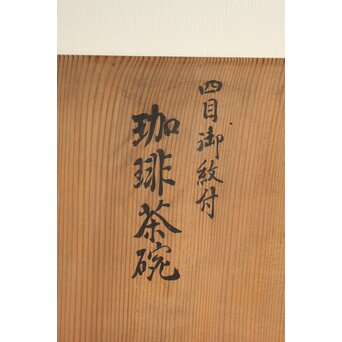 四目御紋付
珈琲茶碗